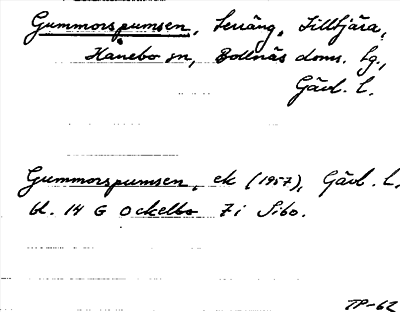 Gummorspumsen, terräng, Lillbjära,
Hanebo sn, Bollnäs doms. tg.,
Gävl. l.
Gummorspumsen, ek (1957), Gävl. l.
bl. 14 G Ockelbo 7 i Sibo.
TP-62